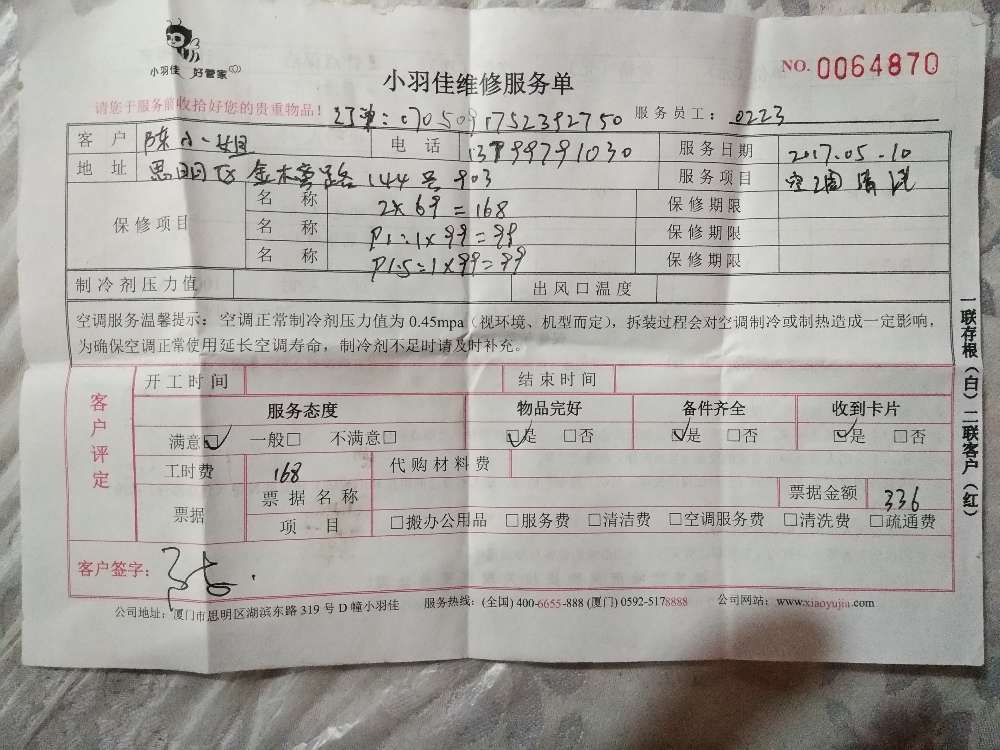 小羽佳 好管家
小羽佳维修服务单
NO. 0064870
请您于服务前收拾好您的贵重物品！
订单：1705091752392750
服务员工：0223
客户 陈小姐 电话 13799791030 服务日期 2017.05.10
地址 思明区金木雷路144号903 服务项目 空调清洗
保修项目 名称 2×69=168 保修期限
名称 P1:1×99=99 保修期限
名称 P1.5:1×99=99 保修期限
制冷剂压力值 出风口温度
空调服务温馨提示：空调正常制冷剂压力值为0.45mpa（视环境、机型而定），拆装过程会对空调制冷或制热造成一定影响，
为确保空调正常使用延长空调寿命，制冷剂不足时请及时补充。
客户评定
开工时间 结束时间
服务态度 物品完好 备件齐全 收到卡片
满意☑ 一般□ 不满意□ ☑是 □否 ☑是 □否 ☑是 □否
工时费 168 代购材料费
票据 票据名称 票据金额 336
项目 □搬办公用品 □服务费 □清洁费 □空调服务费 □清洗费 □疏通费
客户签字：
公司地址：厦门市思明区湖滨东路319号D幢小羽佳 服务热线：(全国) 400-6655-888 (厦门) 0592-5178888 公司网站：www.xiaoyujia.com
一联存根（白）二联客户（红）